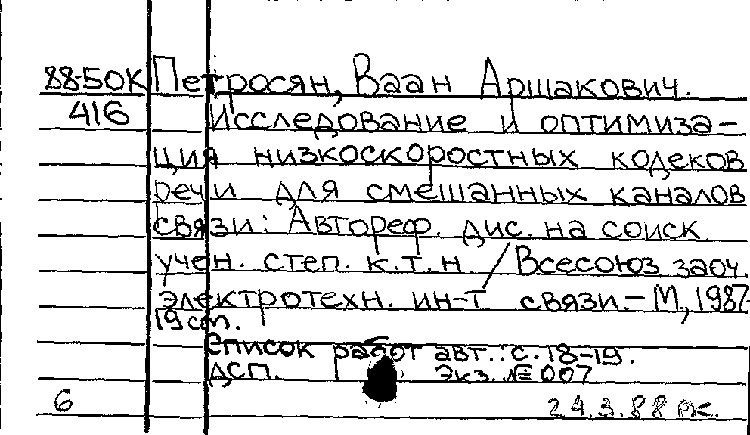 88-50К Петросян, Ваан Аршакович.
416 Исследование и оптимиза-
ция низкоскоростных кодеков
речи для смешанных каналов
связи: Автореф. дис. на соиск
учен. степ. к.т.н / Всесоюз заоч.
электротехн. ин-т связи.- М, 1987
19 ст.
Список работ авт.: с. 18-19.
ДСП. Экз. № 007
6 24.3.88